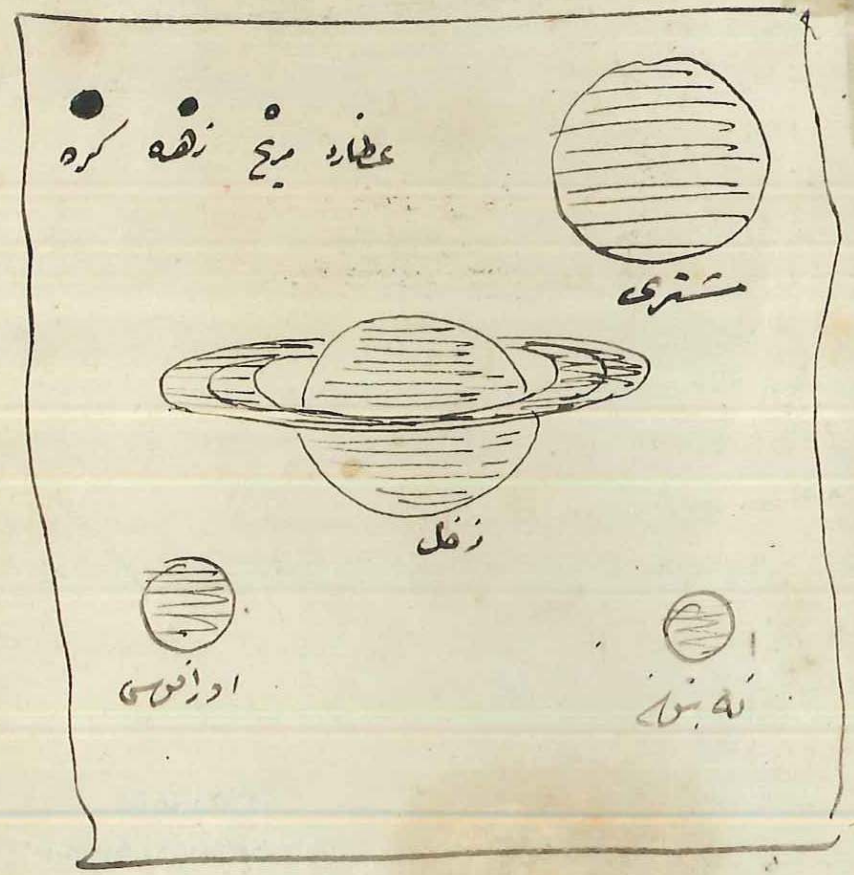 عطارد مریخ زهره کره
مشتری
زحل
اورانوس